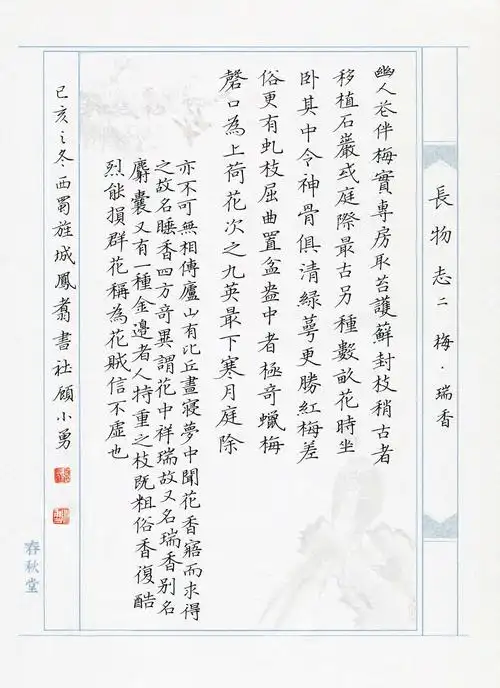 長物志二 梅·瑞香
幽人花伴梅實專房取苔護蘚封枝稍古者
移植石巖或庭際最古另種數畝花時坐
卧其中令神骨俱清緑萼更勝紅梅差
俗更有虬枝屈曲置盆盎中者極奇蠟梅
磬口為上荷花次之九英最下寒月庭除
亦不可無相傳廬山有比丘晝寢夢中聞花香寤而求得
之故名睡香四方奇異謂花中祥瑞故又名瑞香别名
麝囊又有一種金邊者人特重之枝既粗俗香復酷
烈能損群花稱為花賊信不虛也
己亥之冬西蜀旌城鳳翥書社顧小勇
春秋堂